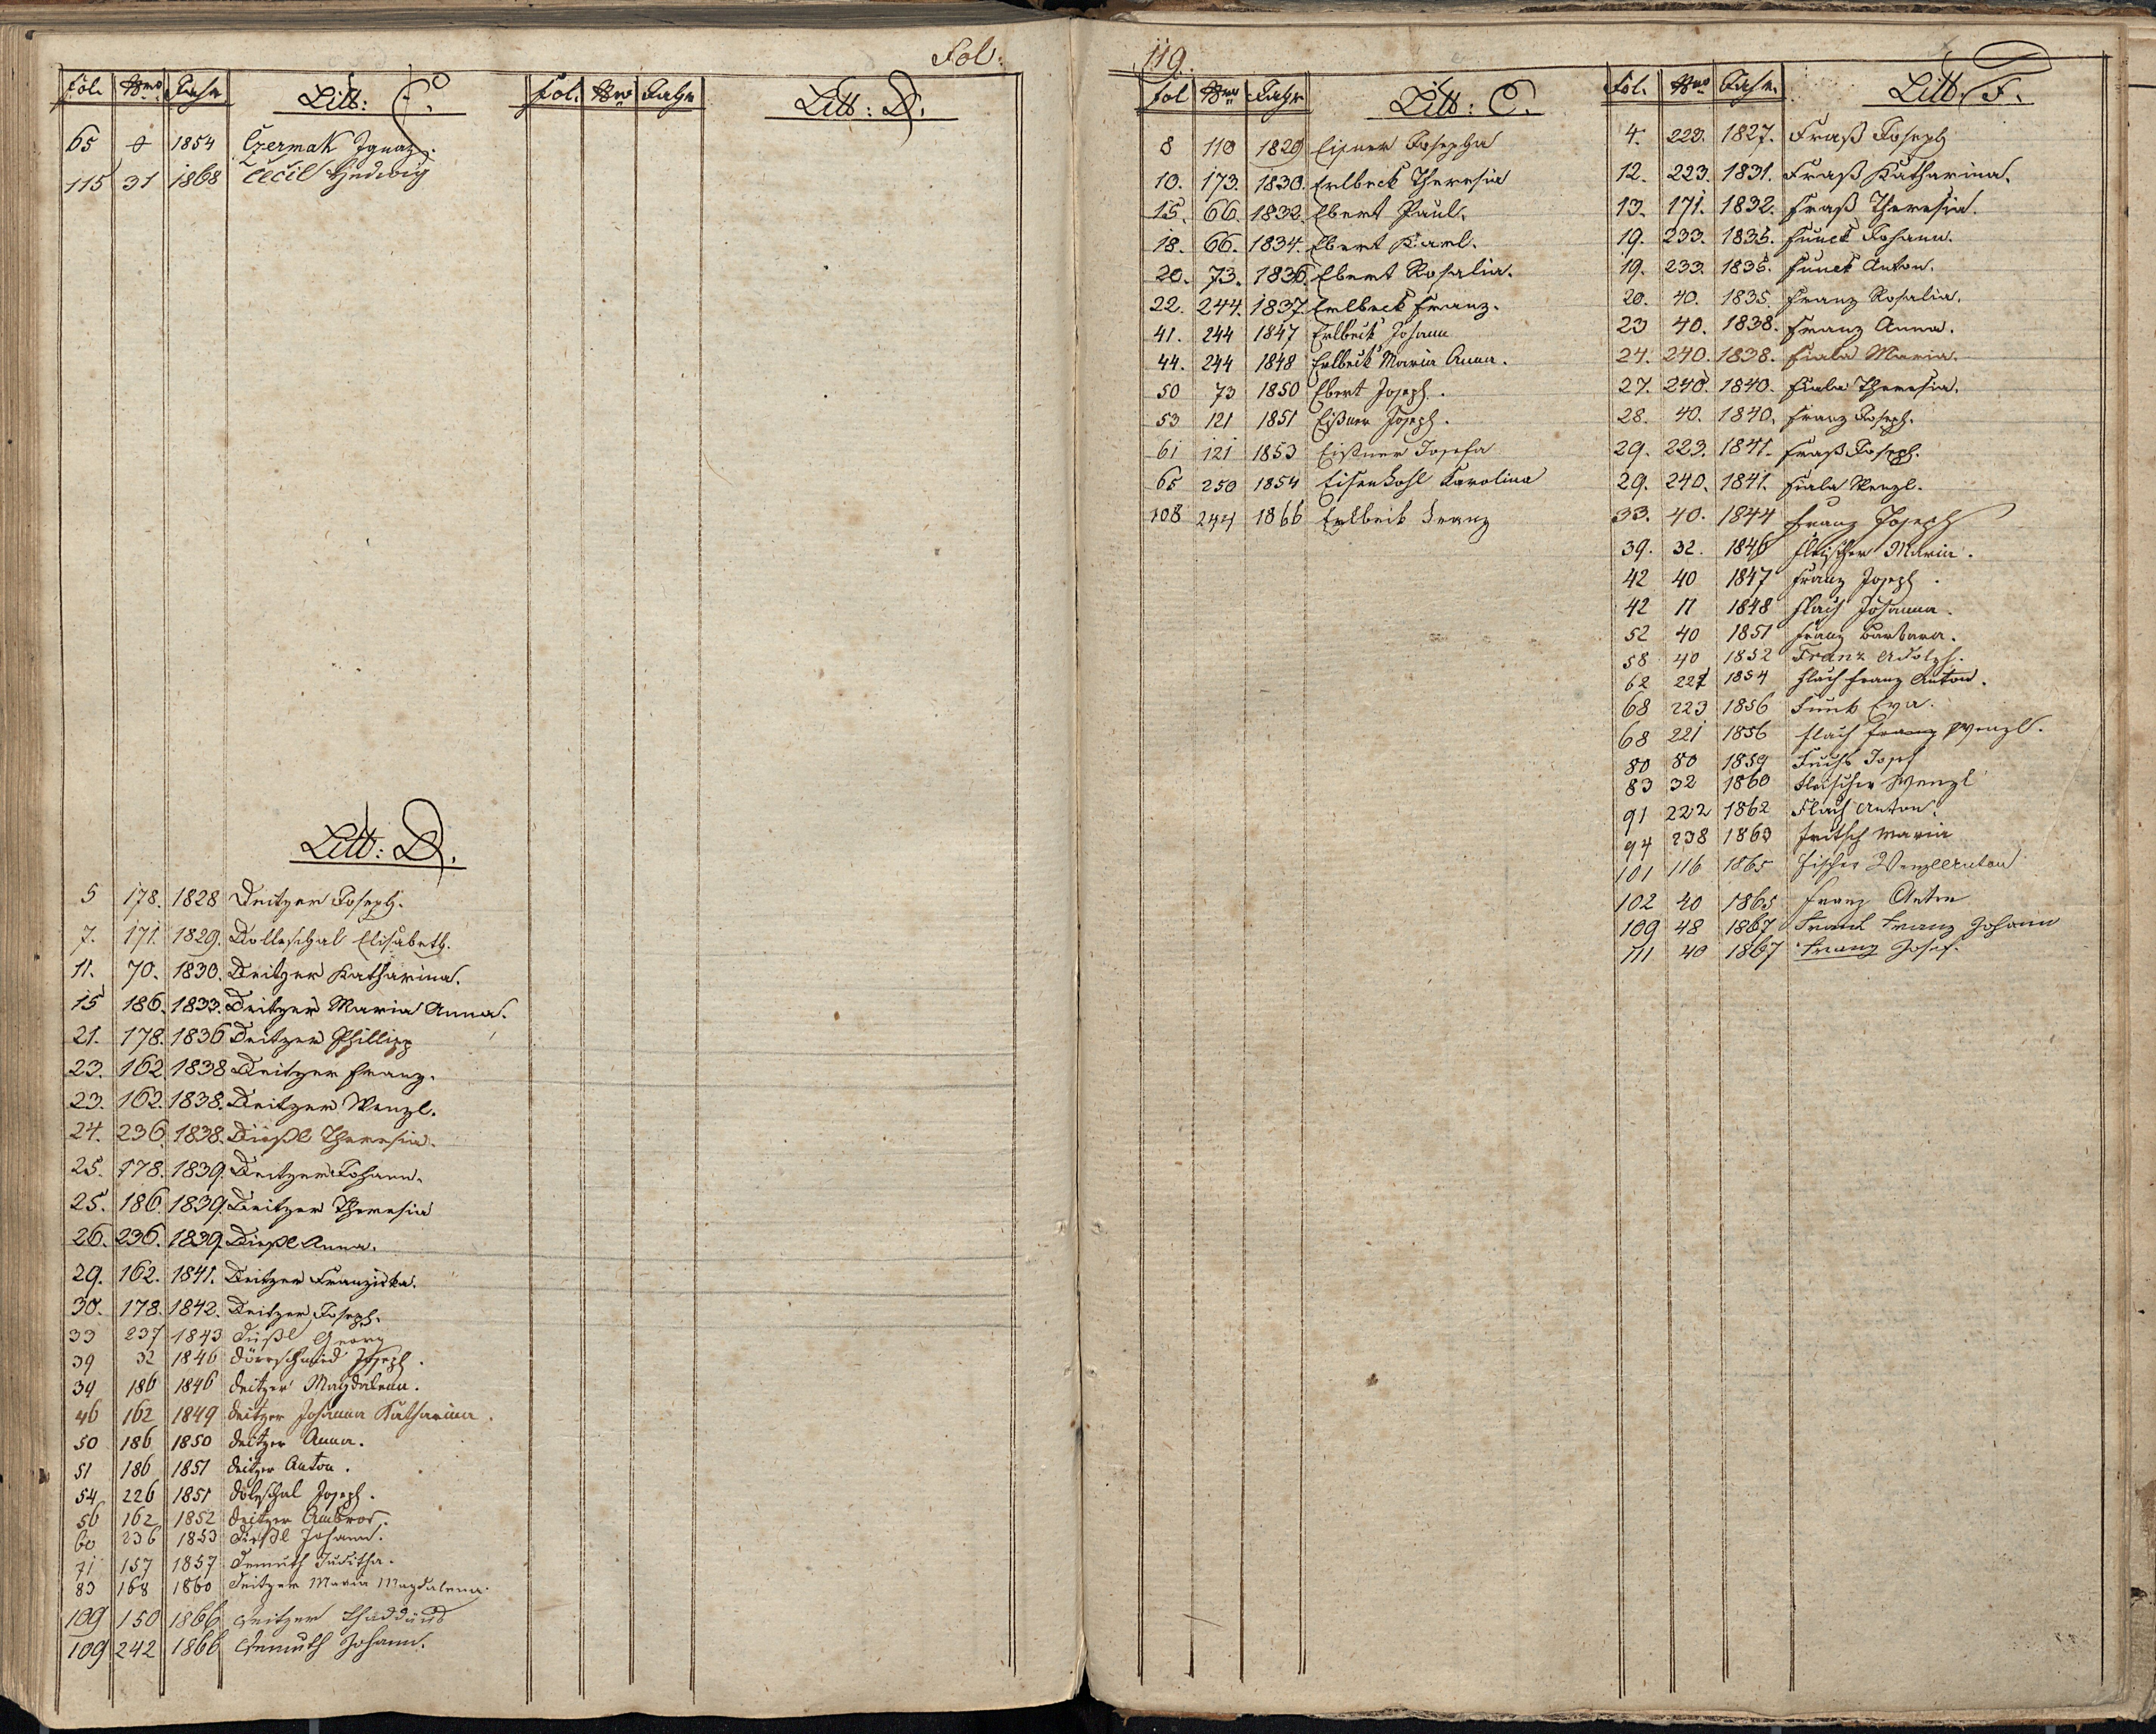 Fol:
Fol. Nro Jahr Litt: C.
65 1854 Czermak Ignaz.
115 31 1868 Cecil Hedwig
Litt: D.
5 178. 1828 Deitzer Joseph.
7. 171. 1829. Dolleschal Elisabeth.
11. 70. 1830. Deitzer Katharina.
15 186. 1833. Deitzer Maria Anna.
21. 178. 1836 Deitzer Phillipp
23. 162. 1838 Deitzer Franz.
23. 162. 1838. Deitzer Wenzl.
24. 236 1838. Dießl Theresia.
25. 178. 1839. Deitzer Johann.
25. 186. 1839. Deitzer Theresia
26. 236. 1839. Dießl Anna.
29. 162. 1841. Deitzer Franziska.
30. 178. 1842. Deitzer Joseph.
33 237 1843 Georg
39 32 1846 Dörrschmied Joseph.
39 186 1846 Deitzer Magdalena.
46 162 1849 Deitzer Johanna Katharina.
50 186 1850 Deitzer Anna.
51 186 1851 Deitzer Anton.
54 226 1851 Doleschal Joseph.
56 162 1852 Deitzer Ambros.
60 236 1853 Dießl Johann.
71 157 1857 Demuth Juditha.
83 168 1860 Deitzer Maria Magdalena.
109 150 1866 Deitzer Thaddäus
109 242 1866 Demuth Johann.
Fol. Nro Jahr Litt: D.
119.
Fol Nro Jahr Litt: E.
8 110 1829 Josepha
10. 173. 1830. Erlbeck Theresia
15. 66. 1832. Ebert Paul.
18. 66. 1834. Ebert Karl.
20. 73. 1836. Ebert Rosalia.
22. 244. 1837. Erlbeck Franz.
41. 244 1847 Erlbeck Johann
44. 244 1848 Erlbeck Maria Anna.
50 73 1850 Ebert Joseph.
53 121 1851 Eißner Joseph.
61 121 1853 Eißner Josefa
65 250 1854 Eisenkohl Karolina
108 244 1866 Erlbeck Franz
Fol. Nro Jahr. Litt. F.
4. 223. 1827. Fraß Joseph
12. 223. 1831. Fraß Katharina.
13. 171. 1832. Fraß Theresia.
19. 233. 1835. Funck Johann.
19. 233. 1835. Funck Anton.
20. 40. 1835. Franz Rosalia.
23 40. 1838. Franz Anna.
24. 240. 1838. Fiala Maria.
27. 240. 1840. Fiala Theresia.
28. 40. 1840. Franz Joseph.
29. 223. 1841. Fraß Joseph.
29. 240. 1841. Fiala Wenzl.
33. 40. 1844 Franz Joseph
39. 32. 1846 Fleischer Maria.
42 40 1847 Franz Joseph.
42 11 1848 Flach Johanna.
52 40 1851 Franz Barbara.
58 40 1852 Franz Adolph.
62 1854 Flach Franz Anton.
68 223 1856 Funk Eva.
68 221 1856 Flach Franz Wenzl.
80 80 1859 Fuchs Josef
83 32 1860 Fleischer Wenzl
91 222 1862 Flach Anton.
94 238 1863 Fritsch Maria
101 116 1865 Fischer Wenzl Anton
102 40 1865 Franz Anton
109 48 1867 Frank Franz Johann
111 40 1867 Franz Josef.